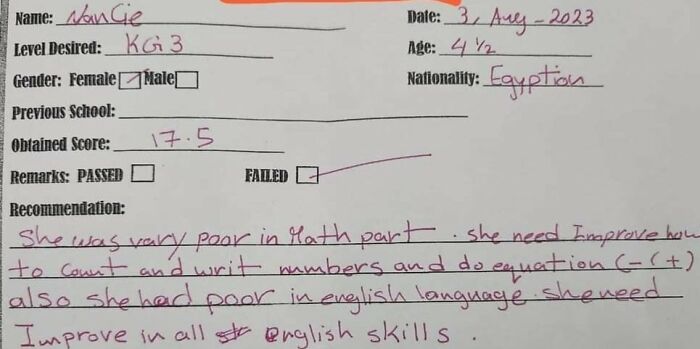 Name: NanCie Date: 3, Aug - 2023
Level Desired: KG 3 Age: 4 1/2
Gender: Female Male Nationality: Egyption
Previous School:
Obtained Score: 17.5
Remarks: PASSED FAILED
Recommendation:
She was vary poor in Math part . she need Improve how
to count and writ numbers and do equation (- (+)
also she had poor in english language. she need
Improve in all english skills .